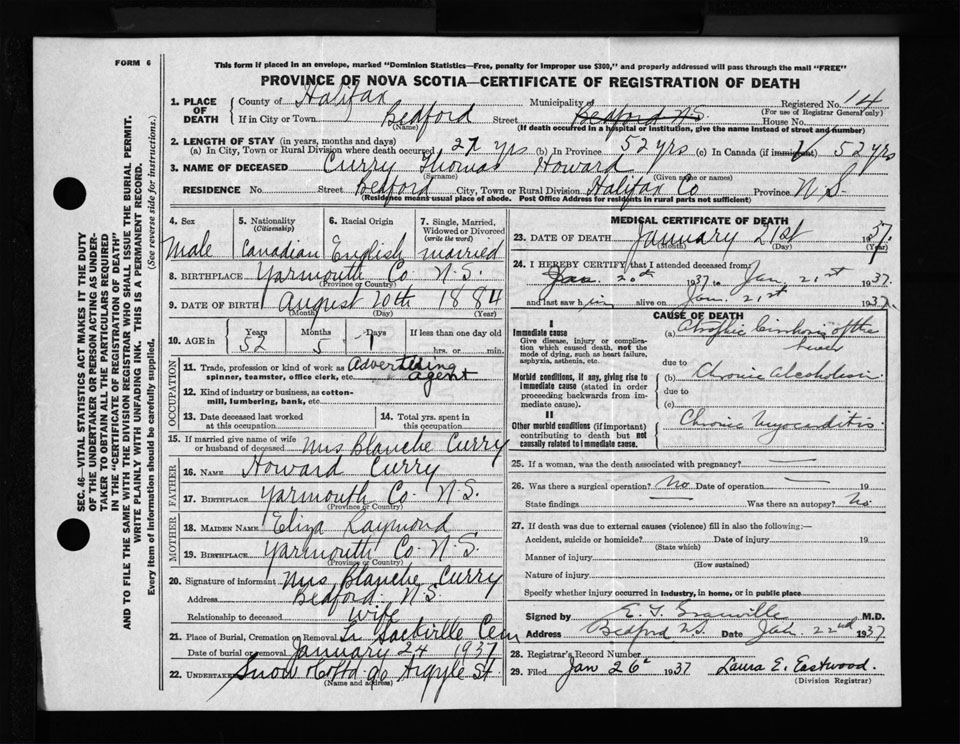 FORM 6
This form if placed in an envelope, marked "Dominion Statistics—Free, penalty for improper use $300," and properly addressed will pass through the mail "FREE"
PROVINCE OF NOVA SCOTIA—CERTIFICATE OF REGISTRATION OF DEATH
1. PLACE OF DEATH County of Halifax Municipality of Registered No. 14
(For use of Registrar General only)
If in City or Town Bedford Street Bedford N.S. House No.
(Name) (If death occurred in a hospital or institution, give the name instead of street and number)
2. LENGTH OF STAY (in years, months and days)
(a) In City, Town or Rural Division where death occurred 27 yrs (b) In Province 52 yrs (c) In Canada (if immigrant) 52 yrs
3. NAME OF DECEASED Curry Thomas Howard
(Surname) (Given name or names)
RESIDENCE No. Street Bedford City, Town or Rural Division Halifax Co Province N.S.
(Residence means usual place of abode. Post Office Address for residents in rural parts not sufficient)
4. Sex Male
5. Nationality (Citizenship) Canadian
6. Racial Origin English
7. Single, Married, Widowed or Divorced (write the word) married
8. BIRTHPLACE Yarmouth Co N.S.
(Province or Country)
9. DATE OF BIRTH August 20th 1884
(Month) (Day) (Year)
10. AGE in Years 52 Months 5 Days 1 If less than one day old
hrs. or min.
OCCUPATION
11. Trade, profession or kind of work as spinner, teamster, office clerk, etc. Advertising agent
12. Kind of industry or business, as cotton-mill, lumbering, bank, etc.
13. Date deceased last worked at this occupation
14. Total yrs. spent in this occupation
15. If married give name of wife or husband of deceased Mrs Blanche Curry
FATHER
16. NAME Howard Curry
17. BIRTHPLACE Yarmouth Co. N.S.
(Province or Country)
MOTHER
18. MAIDEN NAME Eliza Raymond
19. BIRTHPLACE Yarmouth Co N.S.
(Province or Country)
20. Signature of informant Mrs Blanche Curry
Address Bedford N.S.
Relationship to deceased wife
21. Place of Burial, Cremation or Removal Sackville Cem
Date of burial or removal January 24 1937
22. UNDERTAKER Snow Argyle St
(Name and address)
MEDICAL CERTIFICATE OF DEATH
23. DATE OF DEATH January 21st 1937
(Day) (Year)
24. I HEREBY CERTIFY that I attended deceased from
Jan. 20th 1937 to Jan, 21st 1937
and last saw him alive on Jan. 21st 1937
CAUSE OF DEATH
I
Immediate cause
Give disease, injury or complication which caused death, not the mode of dying, such as heart failure, asphyxia, asthenia, etc.
(a) Atrophic Cirrhosis of the liver
due to
Morbid conditions, if any, giving rise to immediate cause (stated in order proceeding backwards from immediate cause).
(b) Chronic Alcoholism
due to
(c)
II
Other morbid conditions (if important) contributing to death but not causally related to immediate cause.
Chronic Myocarditis
25. If a woman, was the death associated with pregnancy?
26. Was there a surgical operation? No Date of operation 19
State findings Was there an autopsy? No
27. If death was due to external causes (violence) fill in also the following:—
Accident, suicide or homicide? Date of injury 19
(State which)
Manner of injury
(How sustained)
Nature of injury
Specify whether injury occurred in industry, in home, or in public place
Signed by E. T. Granville M.D.
Address Bedford N.S. Date Jan. 22nd 1937
28. Registrar's Record Number
29. Filed Jan 26 1937 Laura E. Eastwood.
(Division Registrar)
SEC. 46—VITAL STATISTICS ACT MAKES IT THE DUTY
OF THE UNDERTAKER OR PERSON ACTING AS UNDER-
TAKER TO OBTAIN ALL THE PARTICULARS REQUIRED
IN THE "CERTIFICATE OF REGISTRATION OF DEATH"
AND TO FILE THE SAME WITH THE DIVISION REGISTRAR WHO SHALL ISSUE THE BURIAL PERMIT.
WRITE PLAINLY WITH UNFADING INK. THIS IS A PERMANENT RECORD.
Every item of information should be carefully supplied. (See reverse side for instructions.)